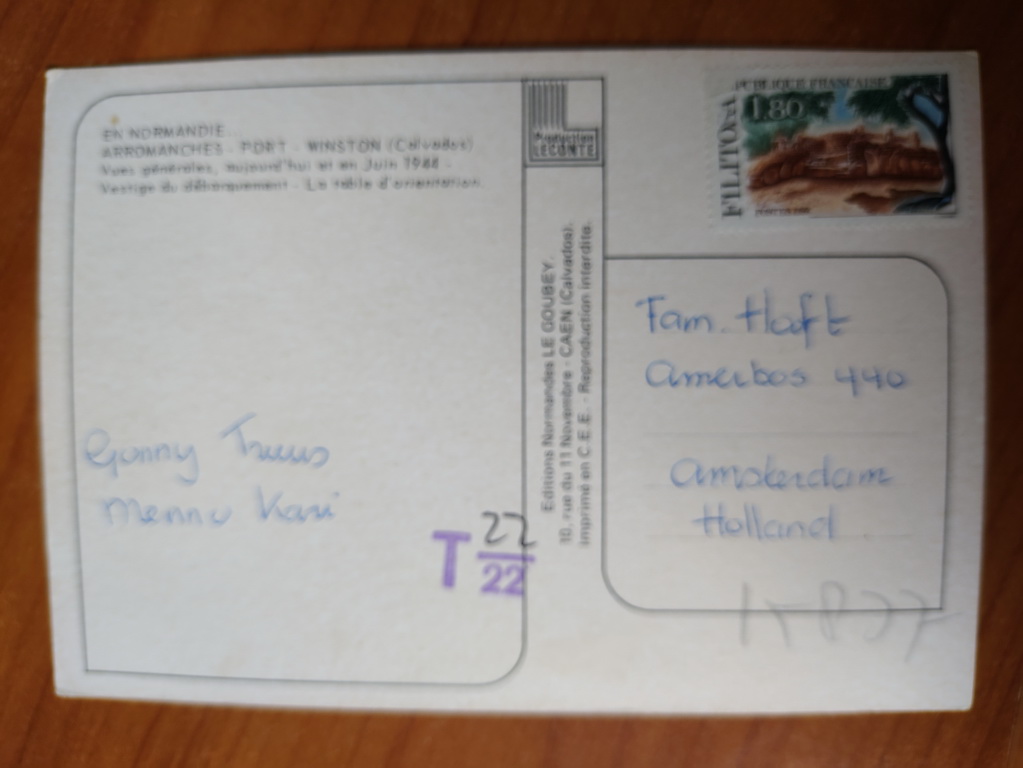 EN NORMANDIE...
ARROMANCHES - PORT - WINSTON (Calvados)
Vues générales, aujourd'hui et en Juin 1944 -
Vestige du débarquement - La table d'orientation.
Gonny Truus
Menno Kari
T 22
22
Production
LECONTE
Editions Normandes LE GOUBEY.
10, rue du 11 Novembre - CAEN (Calvados).
Imprimé en C.E.E. - Reproduction interdite.
FILITOSA
REPUBLIQUE FRANCAISE
1.80
Fam. Hoft
Amerbos 440
Amsterdam
Holland